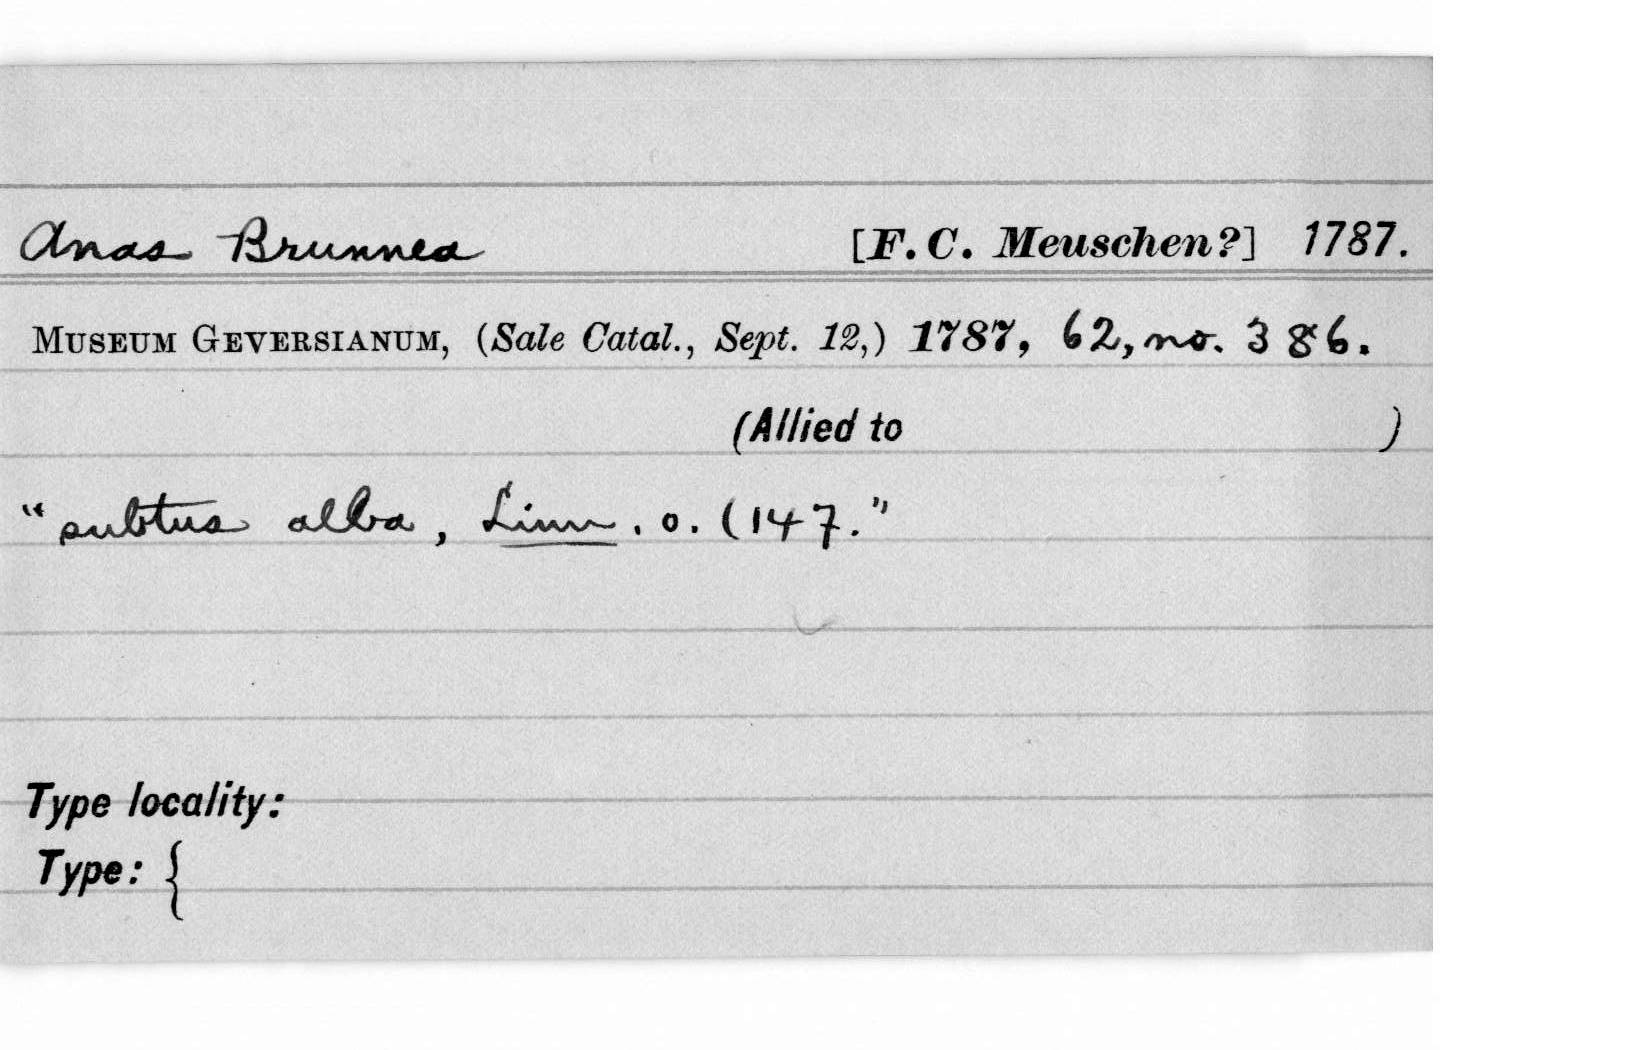 Anas Brunnea [F. C. Meuschen?] 1787.
MUSEUM GEVERSIANUM, (Sale Catal., Sept. 12,) 1787, 62, no. 386.
(Allied to )
"subtus alba, Linn. o. (147."
Type locality:
Type: {